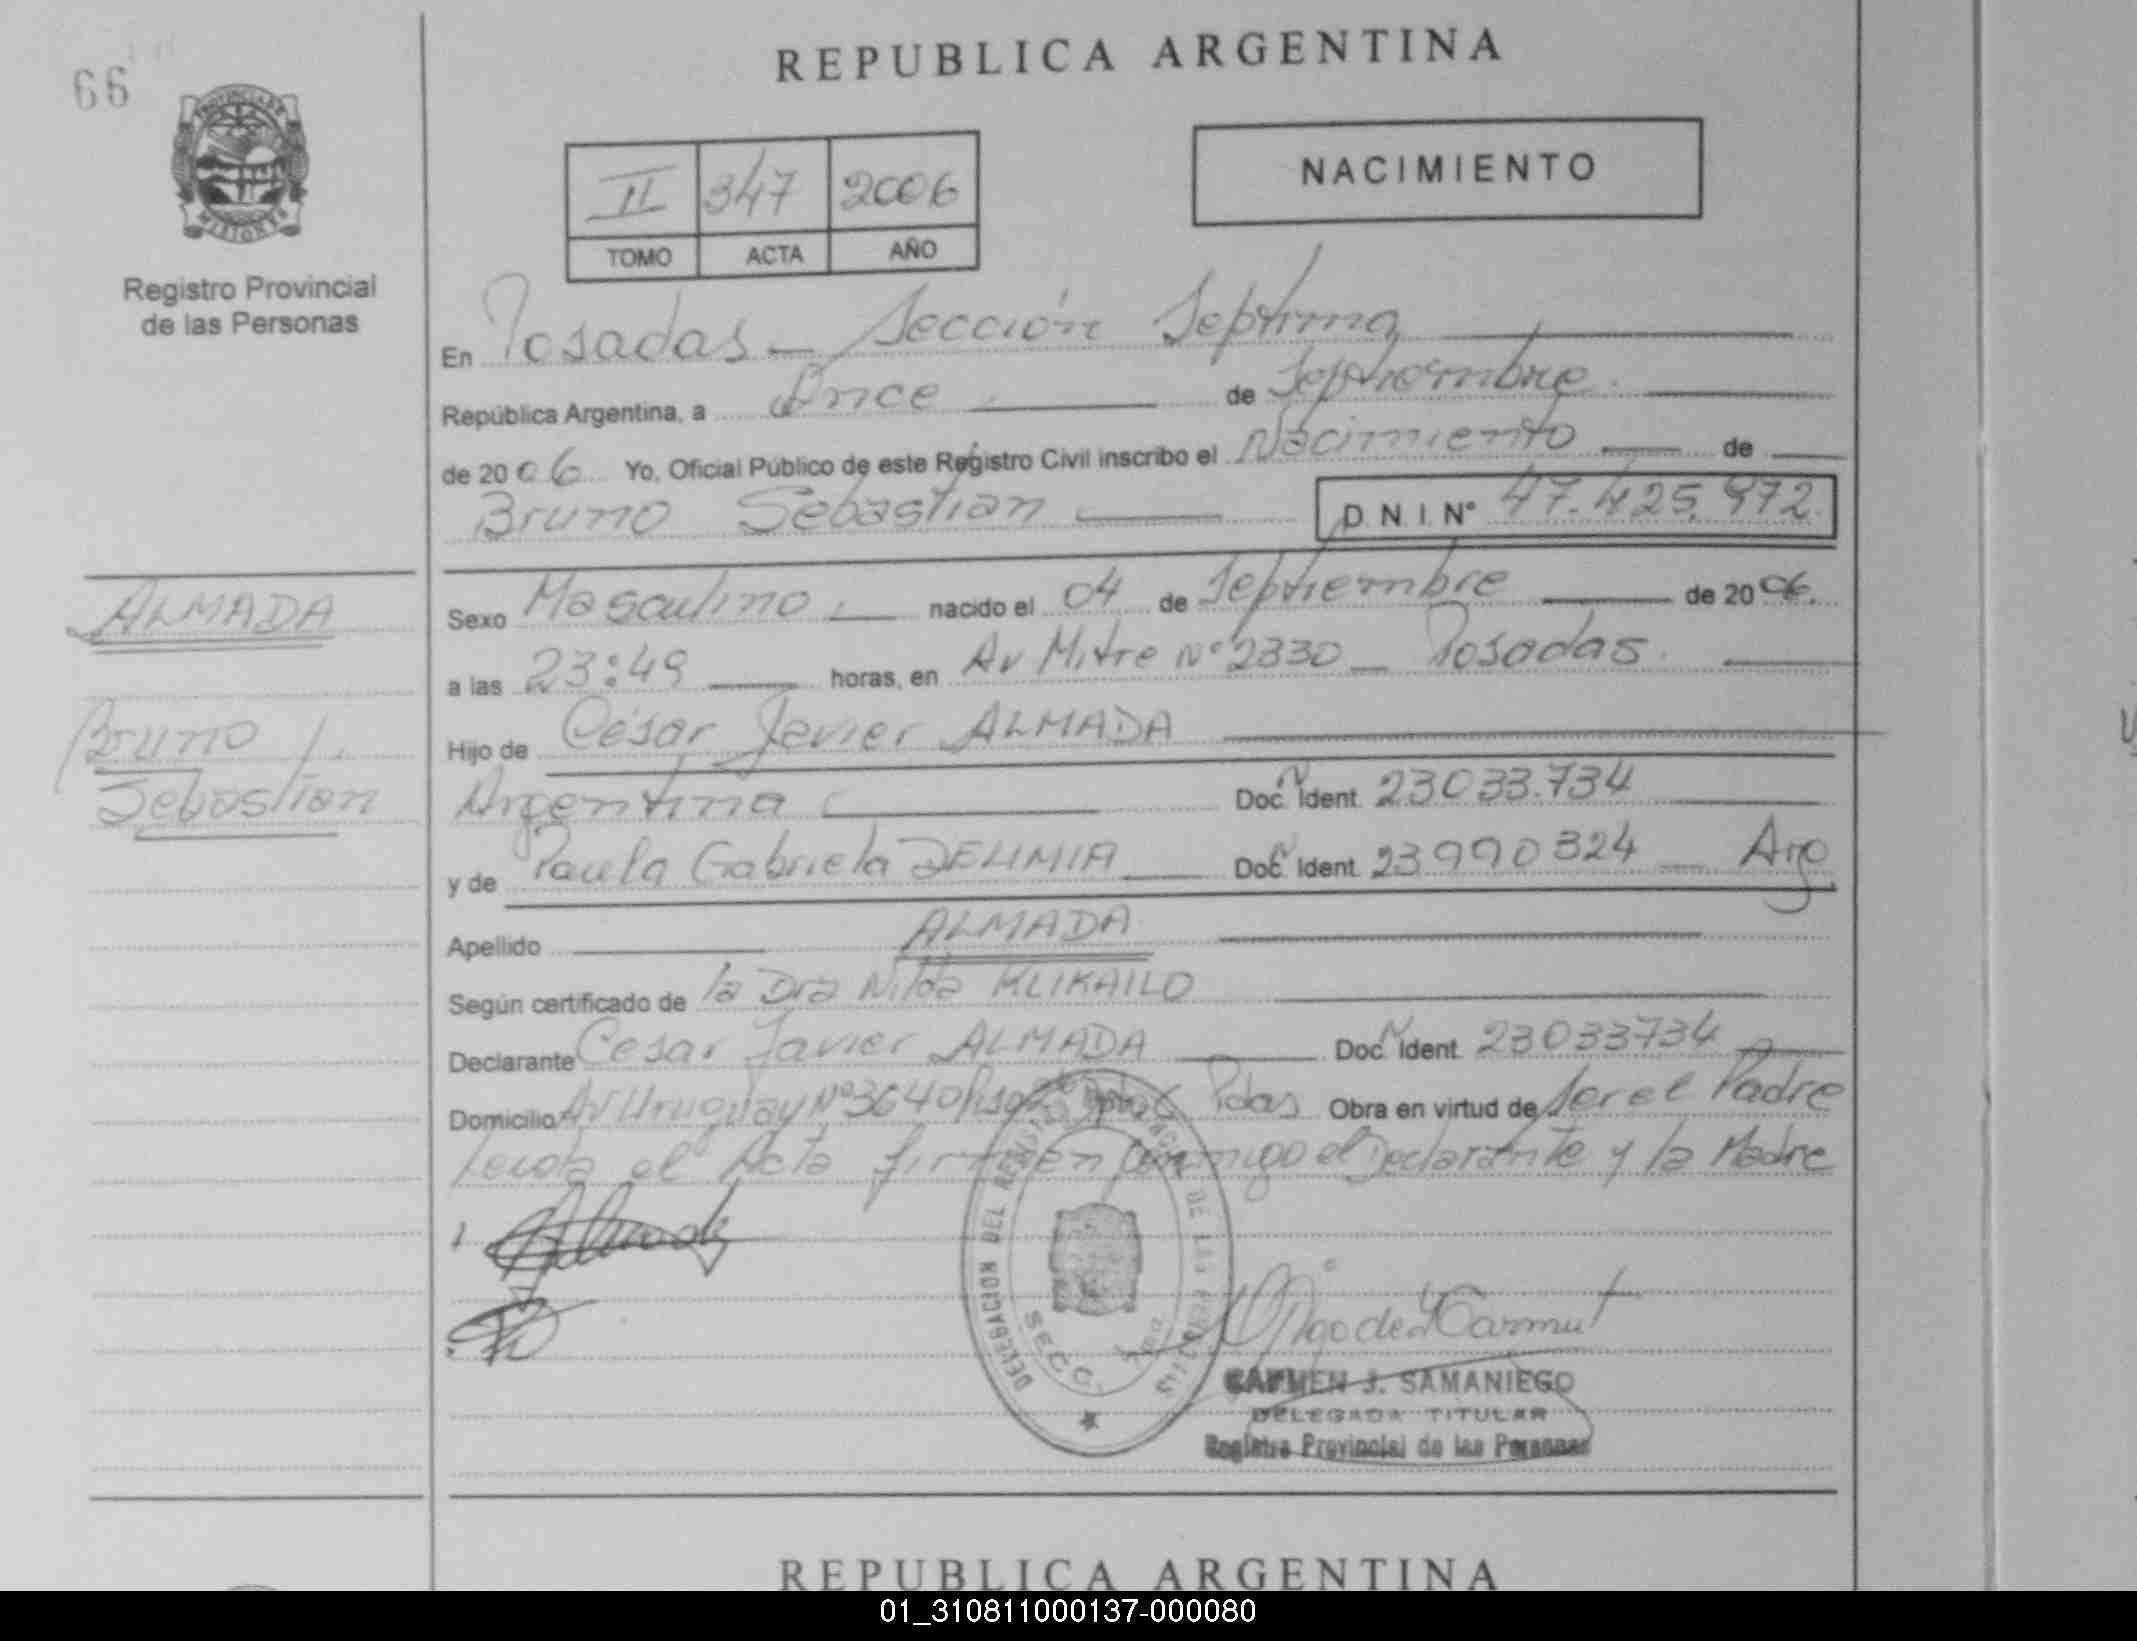 66
REPUBLICA ARGENTINA
PROVINCIA DE
MISIONES
Registro Provincial
de las Personas
II 347 2006
TOMO ACTA AÑO
NACIMIENTO
En Posadas - Sección Septima
República Argentina, a Once de Septiembre
de 2006 Yo, Oficial Público de este Registro Civil inscribo el Nacimiento de
Bruno Sebastian D.N.I. N° 47.425.972
ALMADA
Bruno
Sebastian
Sexo Masculino nacido el 04 de Septiembre de 2006.
a las 23:49 horas, en Av Mitre N° 2330 - Posadas.
Hijo de César Javier ALMADA
Argentina Doc. Ident. 23033.734
y de Paula Gabriela DELIMIA Doc. Ident. 23990324 Arg
Apellido ALMADA
Según certificado de la Dra Nilda KLIKAILO
Declarante Cesar Javier ALMADA Doc. Ident. 23033734
Domicilio Av Uruguay N° 3640 Pdas Obra en virtud de Ser el Padre
Leida el Acta firman conmigo el Declarante y la Madre
DELEGACION DEL REGISTRO PROVINCIAL DE LAS PERSONAS
SECC. 7ma
CARMEN J. SAMANIEGO
DELEGADA TITULAR
Registro Provincial de las Personas
REPUBLICA ARGENTINA
01_310811000137-000080